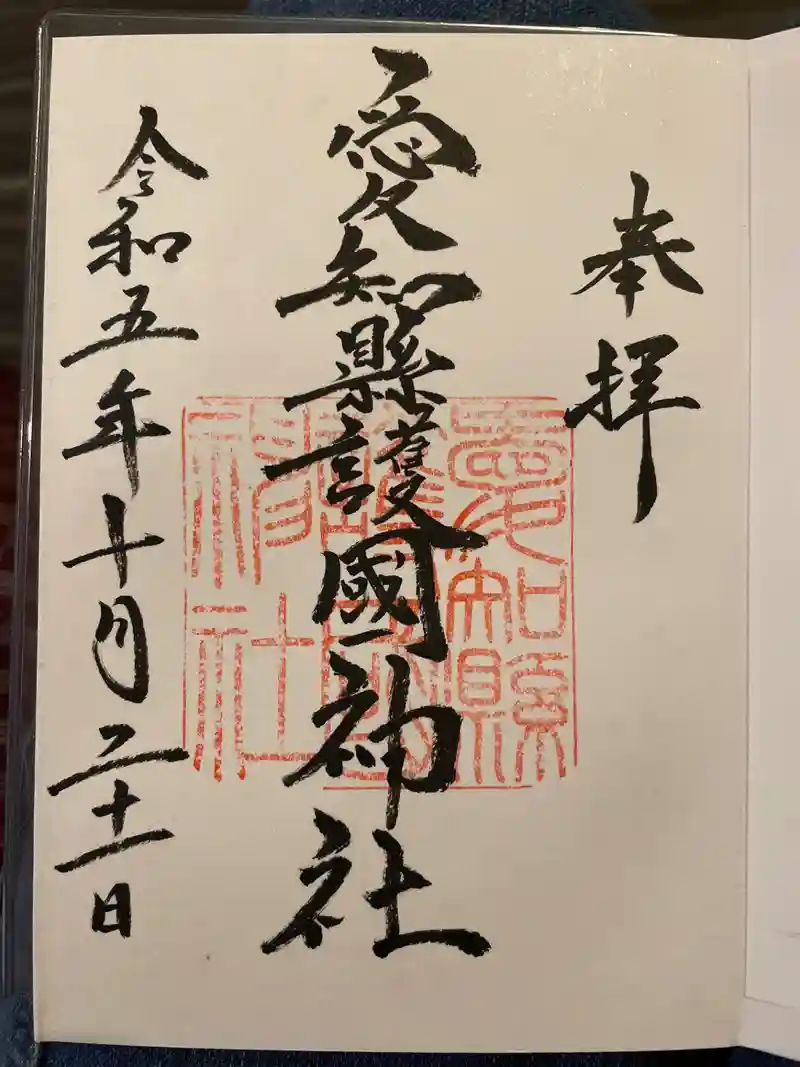 奉拝
愛知縣護國神社
令和五年十月二十一日
愛知縣
護國
神社